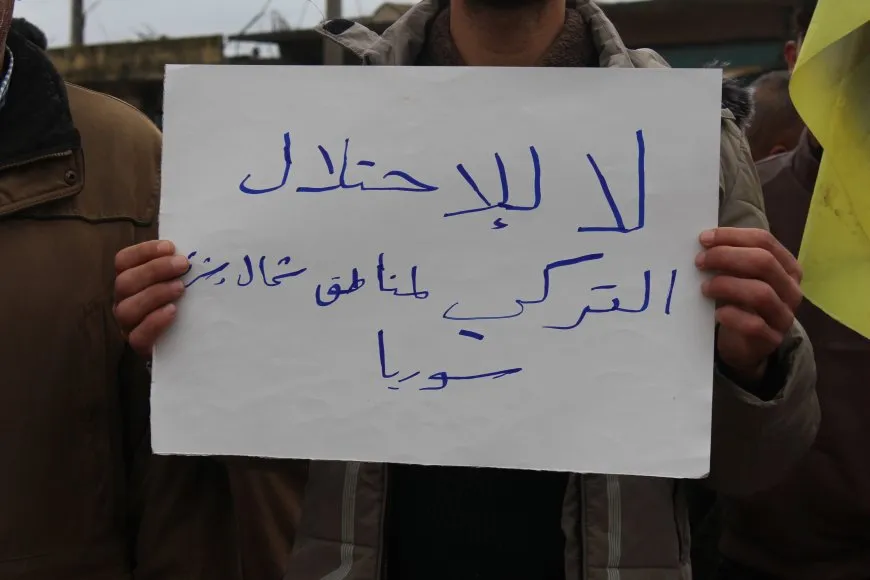 لا للإحتلال
التركي لمناطق شمال
سوريا